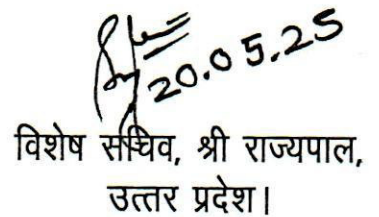 20.05.25
विशेष सचिव, श्री राज्यपाल,
उत्तर प्रदेश।